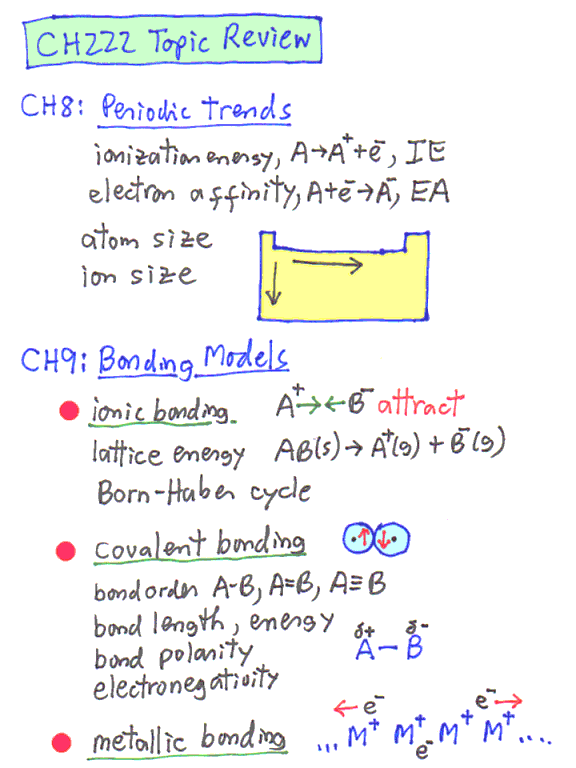 CH222 Topic Review
CH8: Periodic trends
ionization energy, A→A⁺+e⁻, IE
electron affinity, A+e⁻→A⁻, EA
atom size
ion size
CH9: Bonding Models
ionic bonding A⁺→←B⁻ attract
lattice energy AB(s)→A⁺(g)+B⁻(g)
Born-Haber cycle
covalent bonding
bond order A-B, A=B, A≡B
bond length, energy
bond polarity δ+A–δ-B
electronegativity
metallic bonding ...M⁺ M⁺ M⁺ M⁺.... ←e⁻ e⁻ e⁻→